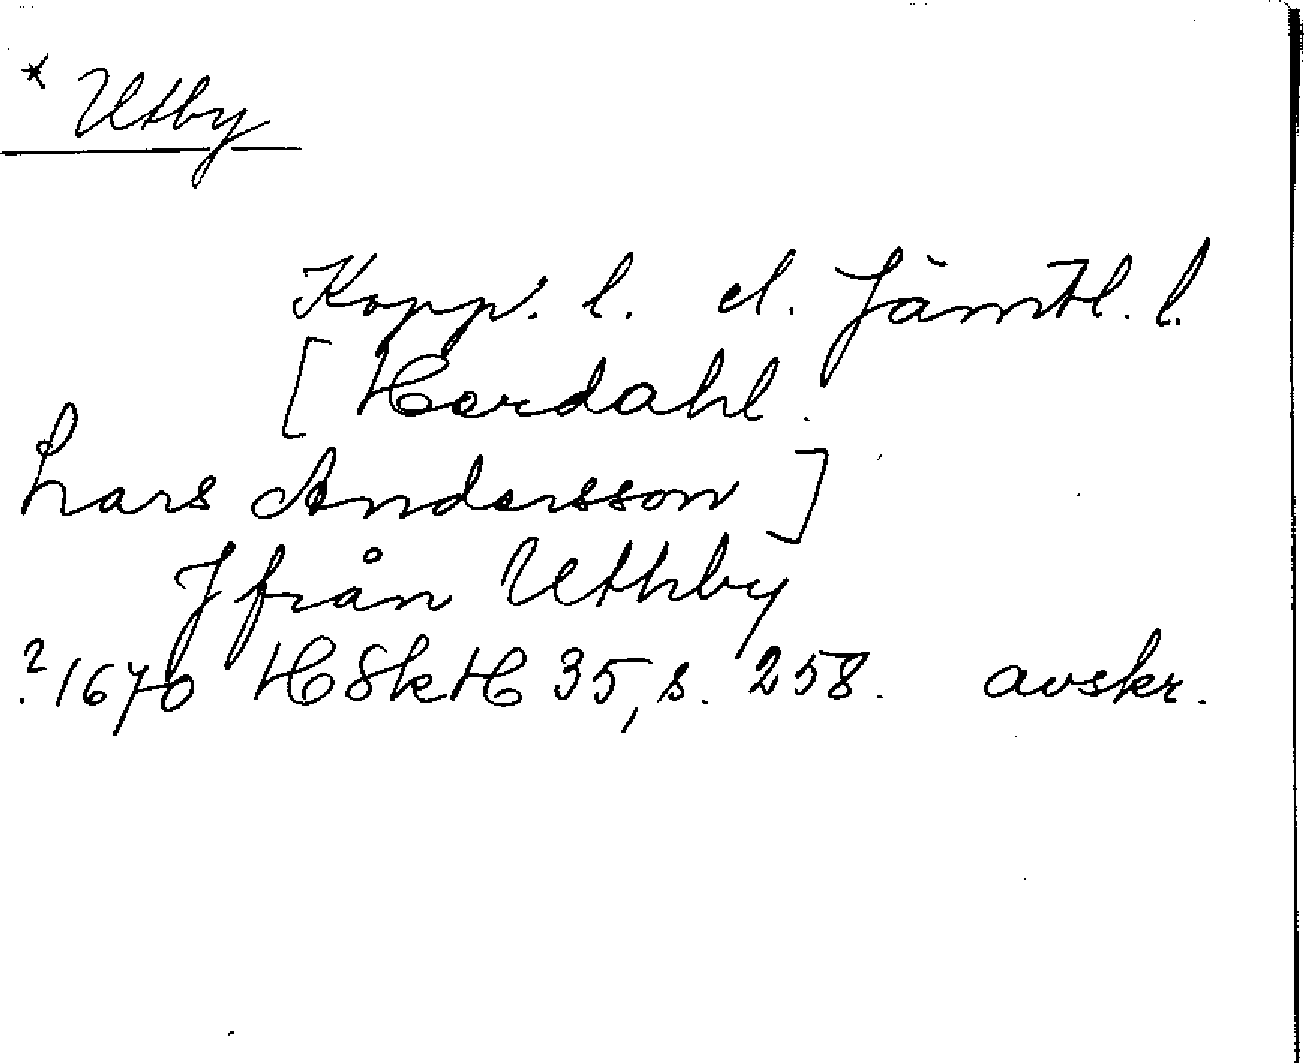 * Utby
Kopp. l. el. Jämtl. l.
[ Herdahl.
Lars Andersson ]
J från Uthby
? 1670 HSkH 35, s. 258. avskr.